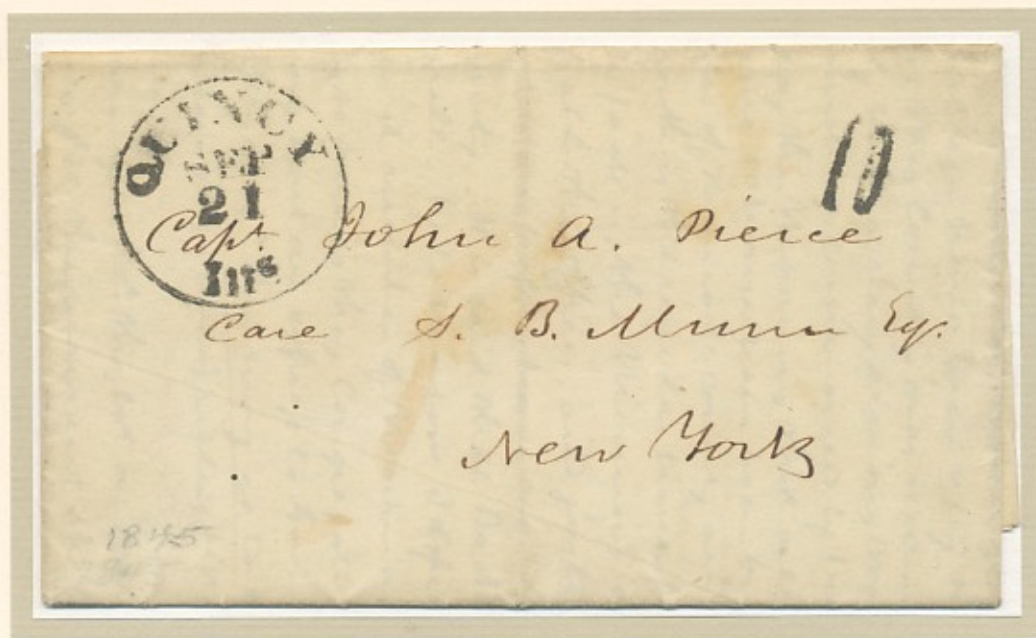 QUINCY
SEP
21
Ills
10
Capt. John A. Pierce
Care S. B. Munn Esq.
New York
1845